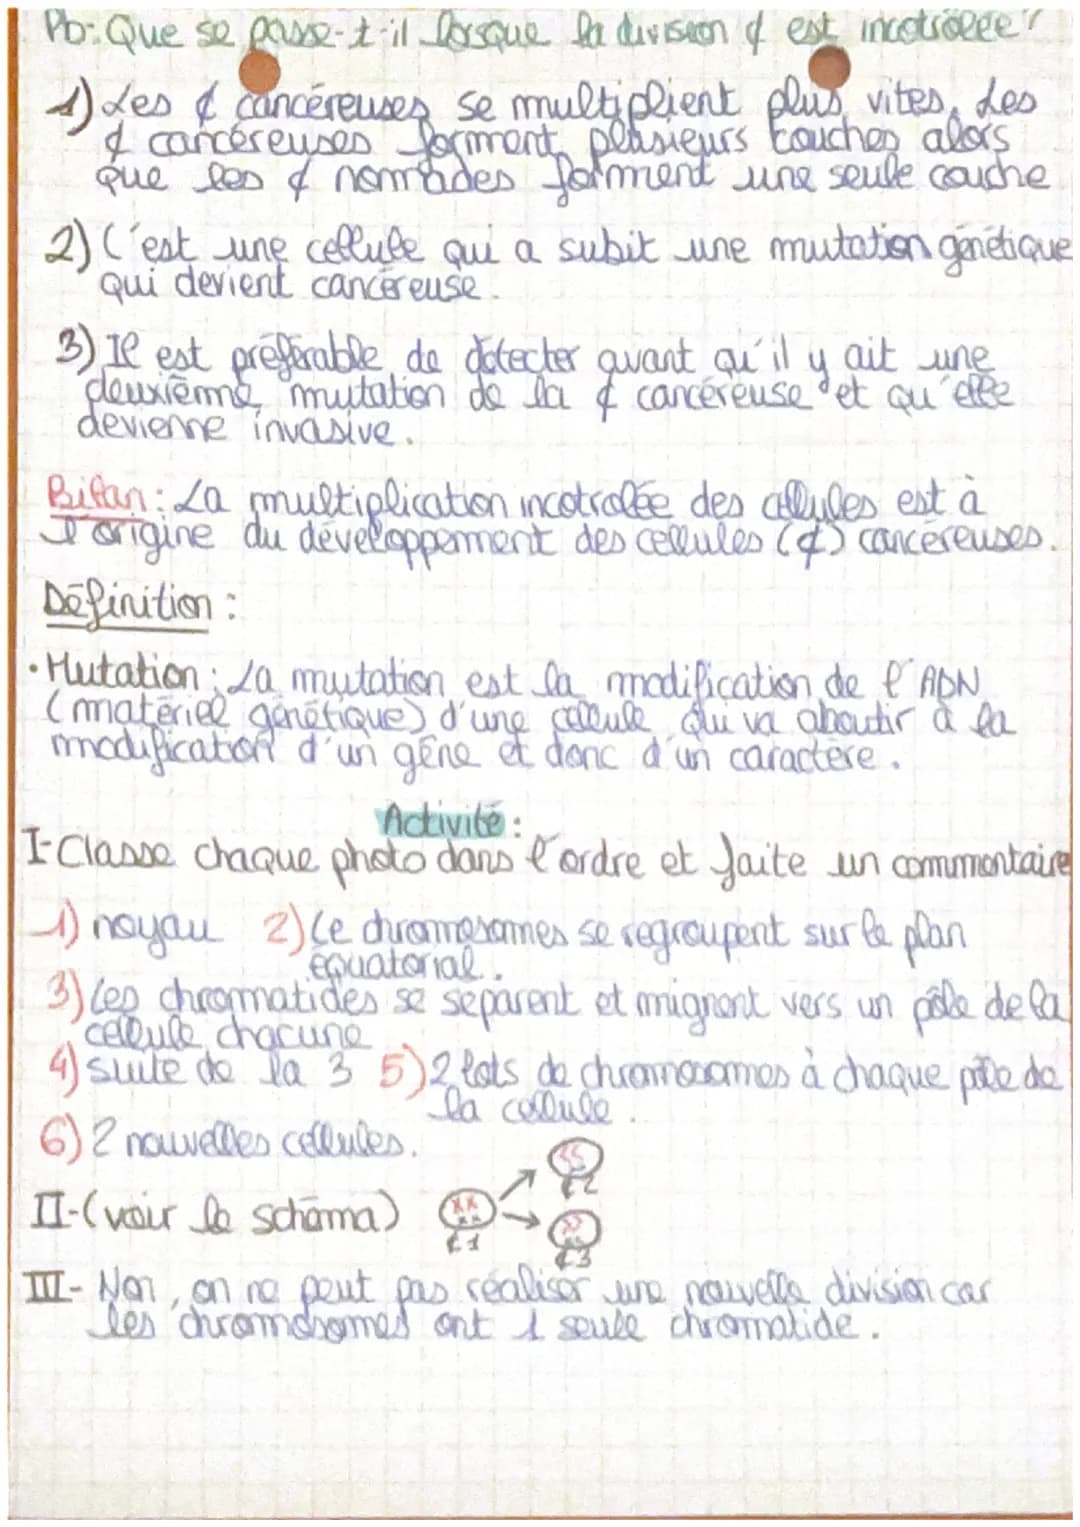 Pb: Que se passe-t-il lorsque la division ¢ est incotrôlée?
1) Les ¢ cancéreuses se multiplient plus vites. Les
¢ cancéreuses forment plusieurs couches alors
que les ¢ normales forment une seule couche
2) C'est une cellule qui a subit une mutation génétique
qui devient cancéreuse.
3) Il est préférable de détecter avant qu'il y ait une
deuxième mutation de la ¢ cancéreuse et qu'elle
devienne invasive.
Bilan: La multiplication incotrolée des cellules est à
l'origine du développement des cellules (¢) cancéreuses.
Définition :
• Mutation : La mutation est la modification de l'ADN
(matériel génétique) d'une cellule qui va aboutir à la
modification d'un gêne et donc d'un caractère.
Activité :
I-Classe chaque photo dans l'ordre et faite un commentaire
1) noyau 2) Le chromosomes se regroupent sur le plan
équatorial.
3) Les chromatides se séparent et migrent vers un pôle de la
cellule chacune
4) suite de la 3 5) 2 lots de chromosomes à chaque pôle de
la cellule.
6) 2 nouvelles cellules.
¢2
II-(voir le schéma)
¢1
¢3
III- Non, on ne peut pas réaliser une nouvelle division car
les chromosomes ont 1 seule chromatide.